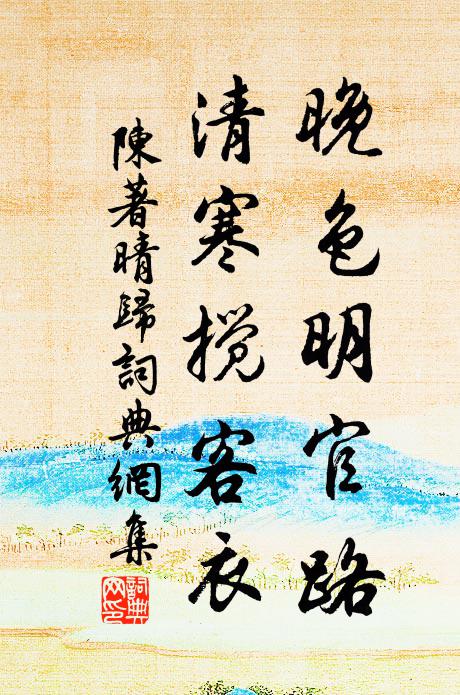 晚色明官路
清寒揽客衣
陳著晴歸詞典網集
詞典網印